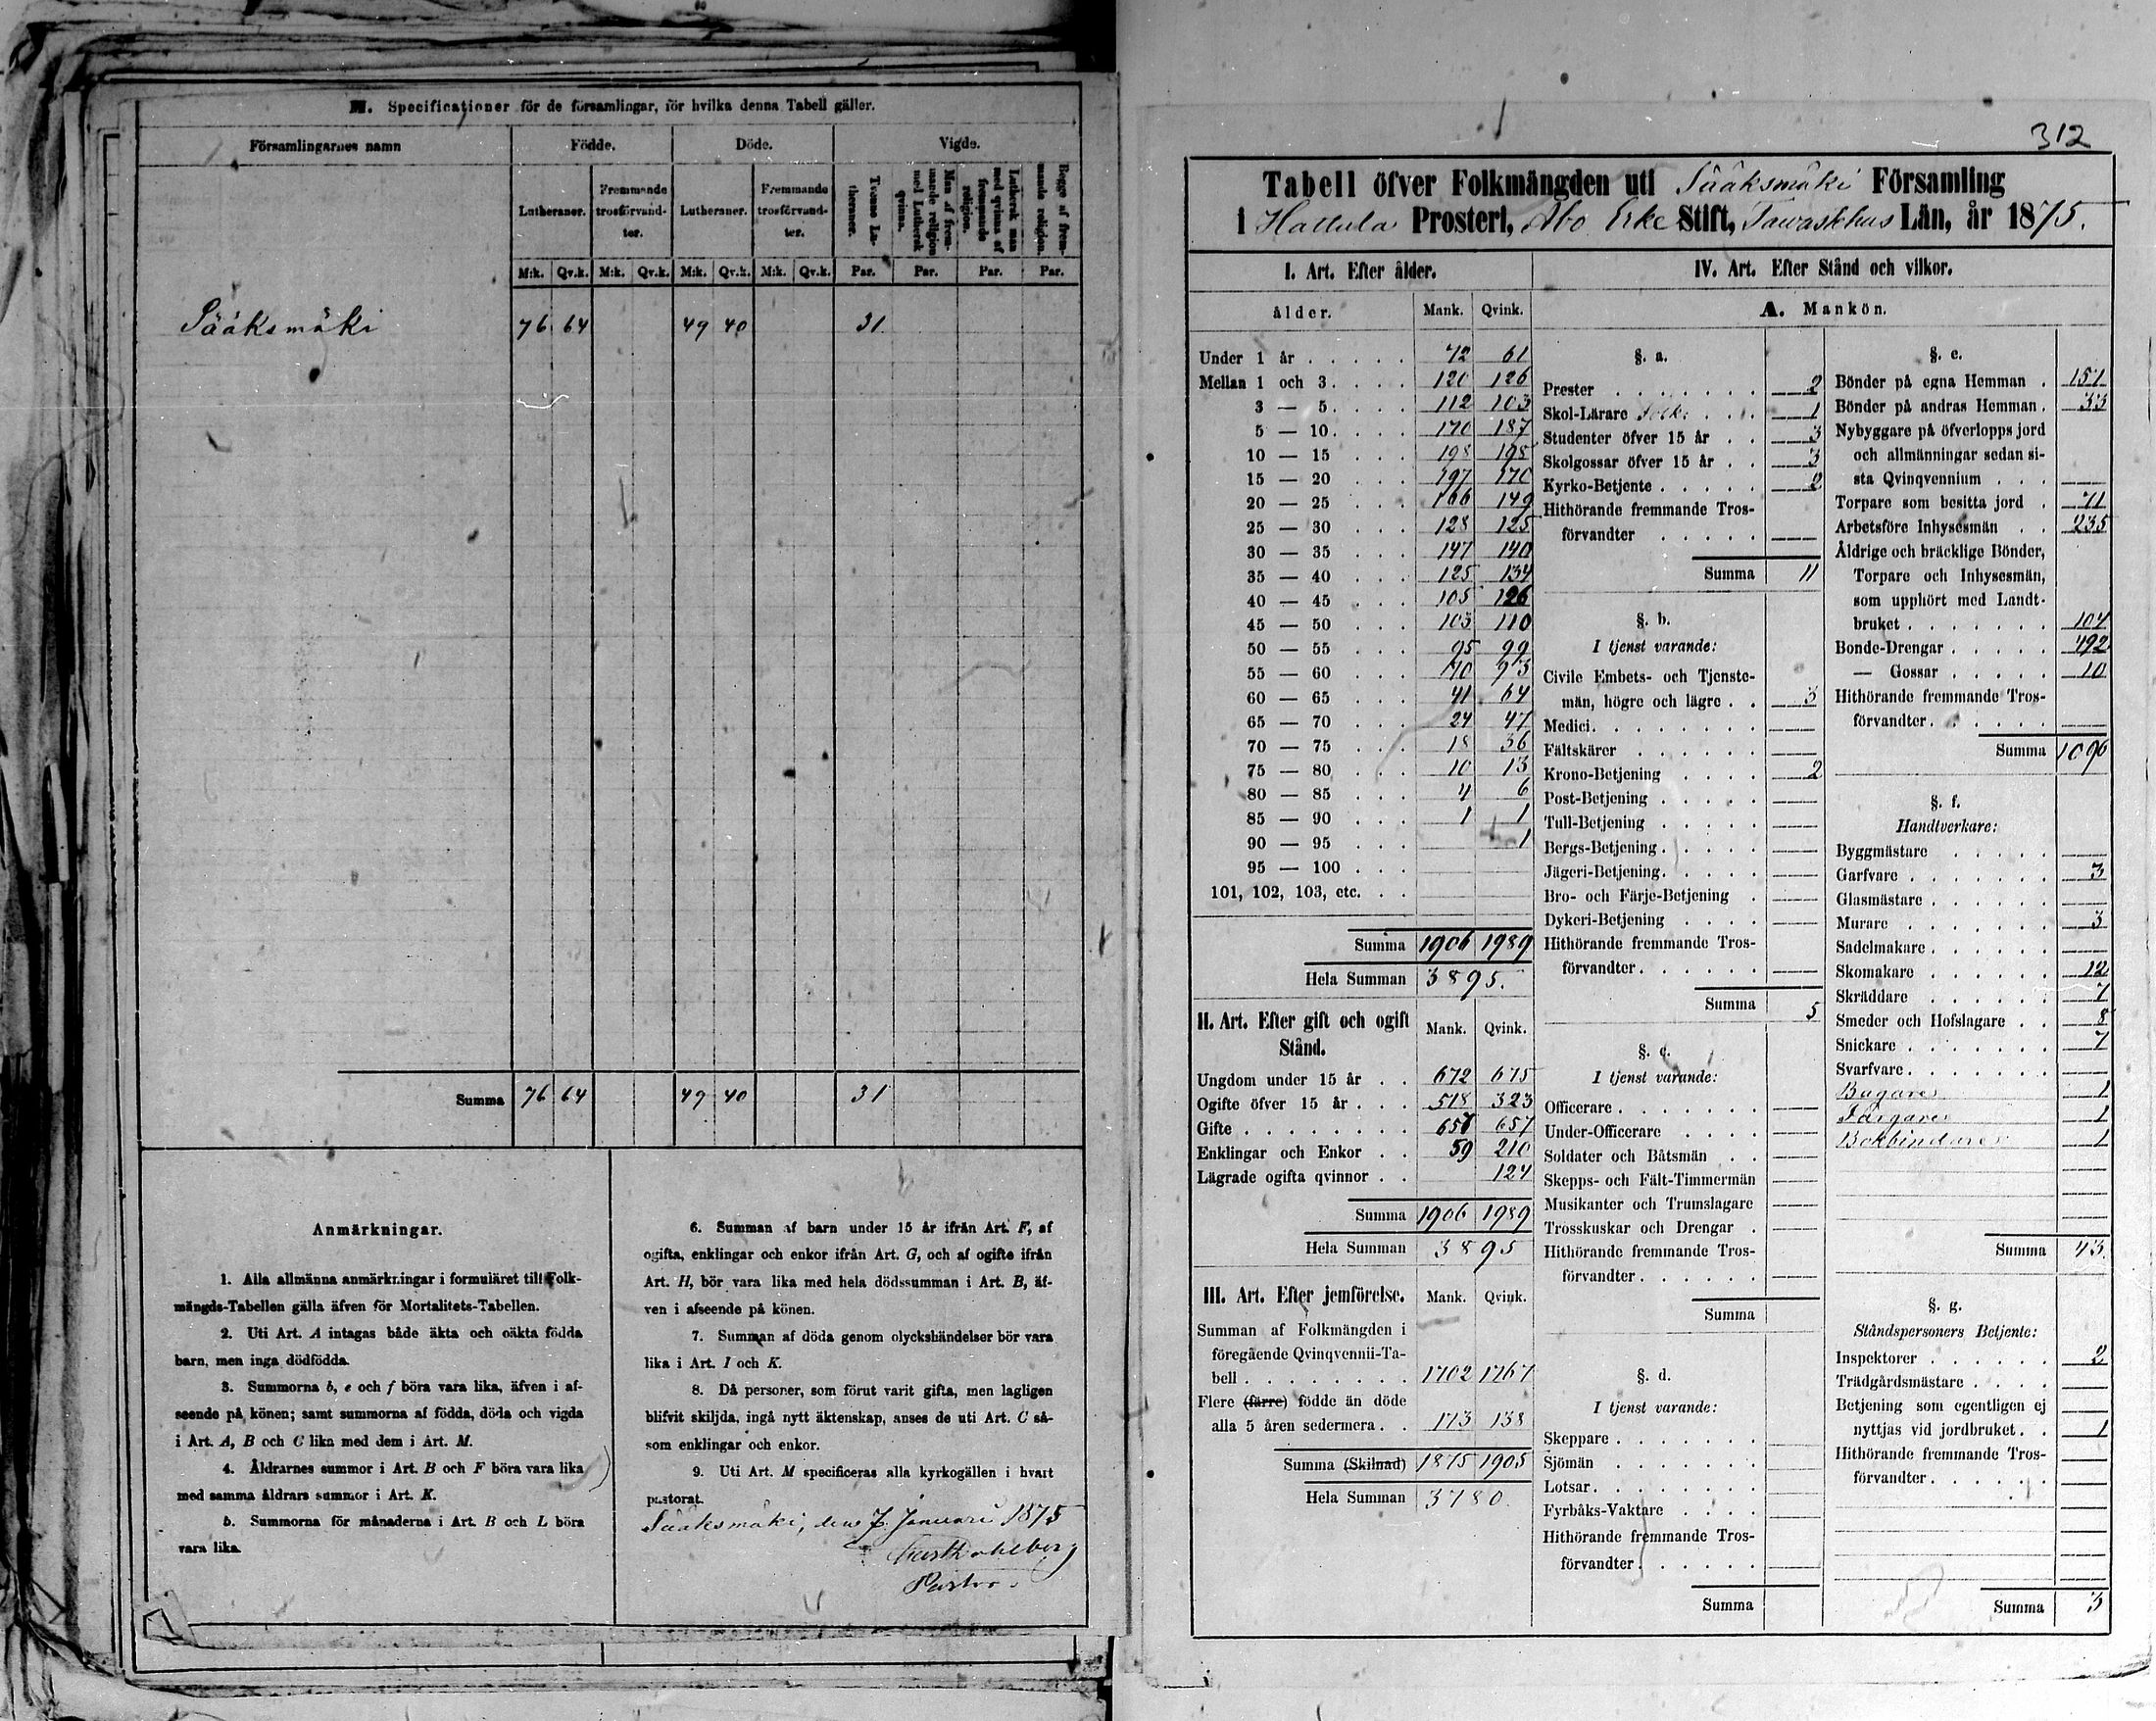 M. Specificationer för de församlingar, för hvilka denna Tabell gäller.
Församlingarnes namn Födde. Döde. Vigde.
Lutheraner. Fremmande trosförvandter. Lutheraner. Fremmande trosförvandter. Tvenne Lutheraner. Man af fremmande religion med Luthersk qvinna. Luthersk man med qvinna af fremmande religion. Begge af fremmande religion.
M:k. Qv.k. M:k. Qv.k. M:k. Qv.k. M:k. Qv.k. Par. Par. Par. Par.
Sääksmäki 76 64 49 40 31
Summa 76 64 49 40 31
Anmärkningar.
1. Alla allmänna anmärkningar i formuläret till Folk-
mängds-Tabellen gälla äfven för Mortalitets-Tabellen.
2. Uti Art. A intagas både äkta och oäkta födda
barn, men inga dödfödda.
3. Summorna b, e och f böra vara lika, äfven i af-
seende på könen; samt summorna af födda, döda och vigda
i Art. A, B och C lika med dem i Art. M.
4. Åldrarnes summor i Art. B och F böra vara lika
med samma åldrars summor i Art. K.
5. Summorna för månaderna i Art. B och L böra
vara lika.
6. Summan af barn under 15 år ifrån Art. F, af
ogifta, enklingar och enkor ifrån Art. G, och af ogifte ifrån
Art. H, bör vara lika med hela dödssumman i Art. B, äf-
ven i afseende på könen.
7. Summan af döda genom olyckshändelser bör vara
lika i Art. I och K.
8. Då personer, som förut varit gifta, men lagligen
blifvit skiljda, ingå nytt äktenskap, anses de uti Art. C så-
som enklingar och enkor.
9. Uti Art. M specificeras alla kyrkogällen i hvart
pastorat.
Sääksmäki, den 7 Januari 1875
312
Tabell öfver Folkmängden uti Sääksmäki Församling
i Hattula Prosteri, Åbo Erke Stift, Tawastehus Län, år 1875.
I. Art. Efter ålder.
ålder. Mank. Qvink.
Under 1 år 72 61
Mellan 1 och 3 120 126
3 — 5 112 103
5 — 10 170 187
10 — 15 198 198
15 — 20 197 170
20 — 25 166 149
25 — 30 128 125
30 — 35 147 140
35 — 40 125 134
40 — 45 105 126
45 — 50 103 110
50 — 55 95 99
55 — 60 70 93
60 — 65 41 64
65 — 70 24 47
70 — 75 18 36
75 — 80 10 13
80 — 85 4 6
85 — 90 1 1
90 — 95 1
95 — 100
101, 102, 103, etc.
Summa 1906 1989
Hela Summan 3895.
II. Art. Efter gift och ogift Stånd. Mank. Qvink.
Ungdom under 15 år 672 675
Ogifte öfver 15 år 518 323
Gifte 657 657
Enklingar och Enkor 59 210
Lägrade ogifta qvinnor 124
Summa 1906 1989
Hela Summan 3895
III. Art. Efter jemförelse. Mank. Qvink.
Summan af Folkmängden i
föregående Qvinqvennii-Ta-
bell 1702 1767
Flere (färre) födde än döde
alla 5 åren sedermera 173 138
Summa (Skilnad) 1875 1905
Hela Summan 3780.
IV. Art. Efter Stånd och vilkor.
A. Mankön.
§. a.
Prester 2
Skol-Lärare Folk: 1
Studenter öfver 15 år 3
Skolgossar öfver 15 år 3
Kyrko-Betjente 2
Hithörande fremmande Tros-
förvandter
Summa 11
§. b.
I tjenst varande:
Civile Embets- och Tjenste-
män, högre och lägre 3
Medici
Fältskärer
Krono-Betjening 2
Post-Betjening
Tull-Betjening
Bergs-Betjening
Jägeri-Betjening
Bro- och Färje-Betjening
Dykeri-Betjening
Hithörande fremmande Tros-
förvandter
Summa 5
§. c.
I tjenst varande:
Officerare
Under-Officerare
Soldater och Båtsmän
Skepps- och Fält-Timmermän
Musikanter och Trumslagare
Trosskuskar och Drengar
Hithörande fremmande Tros-
förvandter
Summa
§. d.
I tjenst varande:
Skeppare
Sjömän
Lotsar
Fyrbåks-Vaktare
Hithörande fremmande Tros-
förvandter
Summa
§. e.
Bönder på egna Hemman 151
Bönder på andras Hemman 33
Nybyggare på öfverlopps jord
och allmänningar sedan si-
sta Qvinqvennium
Torpare som besitta jord 71
Arbetsföre Inhysesmän 235
Åldrige och bräcklige Bönder,
Torpare och Inhysesmän,
som upphört med Landt-
bruket 104
Bonde-Drengar 492
— Gossar 10
Hithörande fremmande Tros-
förvandter
Summa 1096
§. f.
Handtverkare:
Byggmästare
Garfvare 3
Glasmästare
Murare 3
Sadelmakare
Skomakare 12
Skräddare 7
Smeder och Hofslagare 8
Snickare 7
Svarfvare
Bagare 1
Färgare 1
Bokbindare 1
Summa 43.
§. g.
Ståndspersoners Betjente:
Inspektorer 2
Trädgårdsmästare
Betjening som egentligen ej
nyttjas vid jordbruket 1
Hithörande fremmande Tros-
förvandter
Summa 3